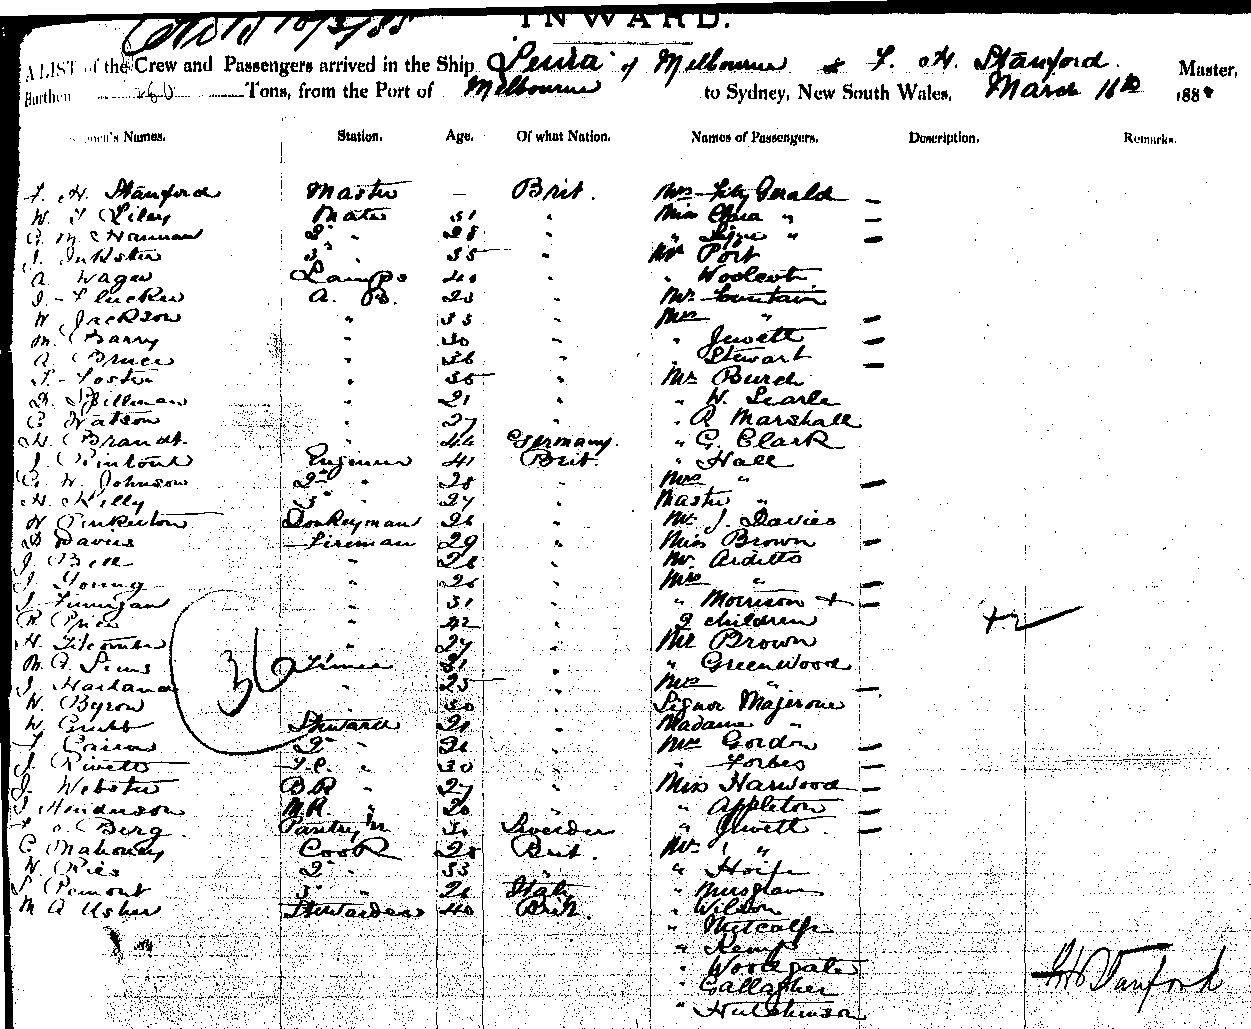 INWARD.
A LIST of the Crew and Passengers arrived in the Ship of Melbourne F. H. Stanford Master,
Burthen 260 Tons, from the Port of Melbourne to Sydney, New South Wales, March 16th 188
Names. Station. Age. Of what Nation. Names of Passengers. Description. Remarks.
F. H. Stanford Master – Brit. Mrs Fitz Gerald –
W. Mate 31 " Miss " –
Hannan 2d " 28 " " Lizzie " –
J. Inkster 3d " 35 " Mr Port
A. Wager Lamps 40 " " Woolcott
J. A. B. 23 " Mr Fountain
W. Jackson " 33 " Mrs " –
M. Barry " 30 " " Jewett –
A. Bruce " 36 " " Stewart –
Foster " 35 " Mr Burch
Spillman " 21 " " W. Searle
C. Watson " 27 " " R Marshall
H. Brandt " 44 Germany. " G. Clark
J. Engineer 41 Brit. " Hall
G. W. Johnson 2d " 28 " Mrs " –
H. Kelly 3d " 27 " Master "
W Pinkerton Donkeyman 26 " Mr J. Davies
D Davies Fireman 29 " Miss Brown –
J. Bell " 26 " Mr Arditto
J. Young " 26 " Mrs " –
J. Finnigan " 31 " " Morrison + –
R. Price " 42 " 2 children +2
H. Titcombe " 27 " Mr Brown
M. A. Sims 36 Trimer 31 " " Greenwood
J. " 25 " Mrs " –
W. Byron " 30 " Signor Majeroni
W. Steward 21 " Madame "
2d " 21 " Mrs Gordon –
J. Rivett " 30 " " Forbes –
J. Webster B.R " 27 " Miss Harwood –
J Henderson M.R. " 20 " " Appleton –
Berg Pantry'm 30 Sweden " Jewett –
C. Mahoney Cook 28 Brit. Mr "
W. 2d " 33 " "
3d " 26 Italy " Musgrave
M A Usher Stewardess 40 Brit. " Wilson
" Metcalfe
" Kemp
" Woodgate
" Gallagher
" Hutchinson
F H Stanford